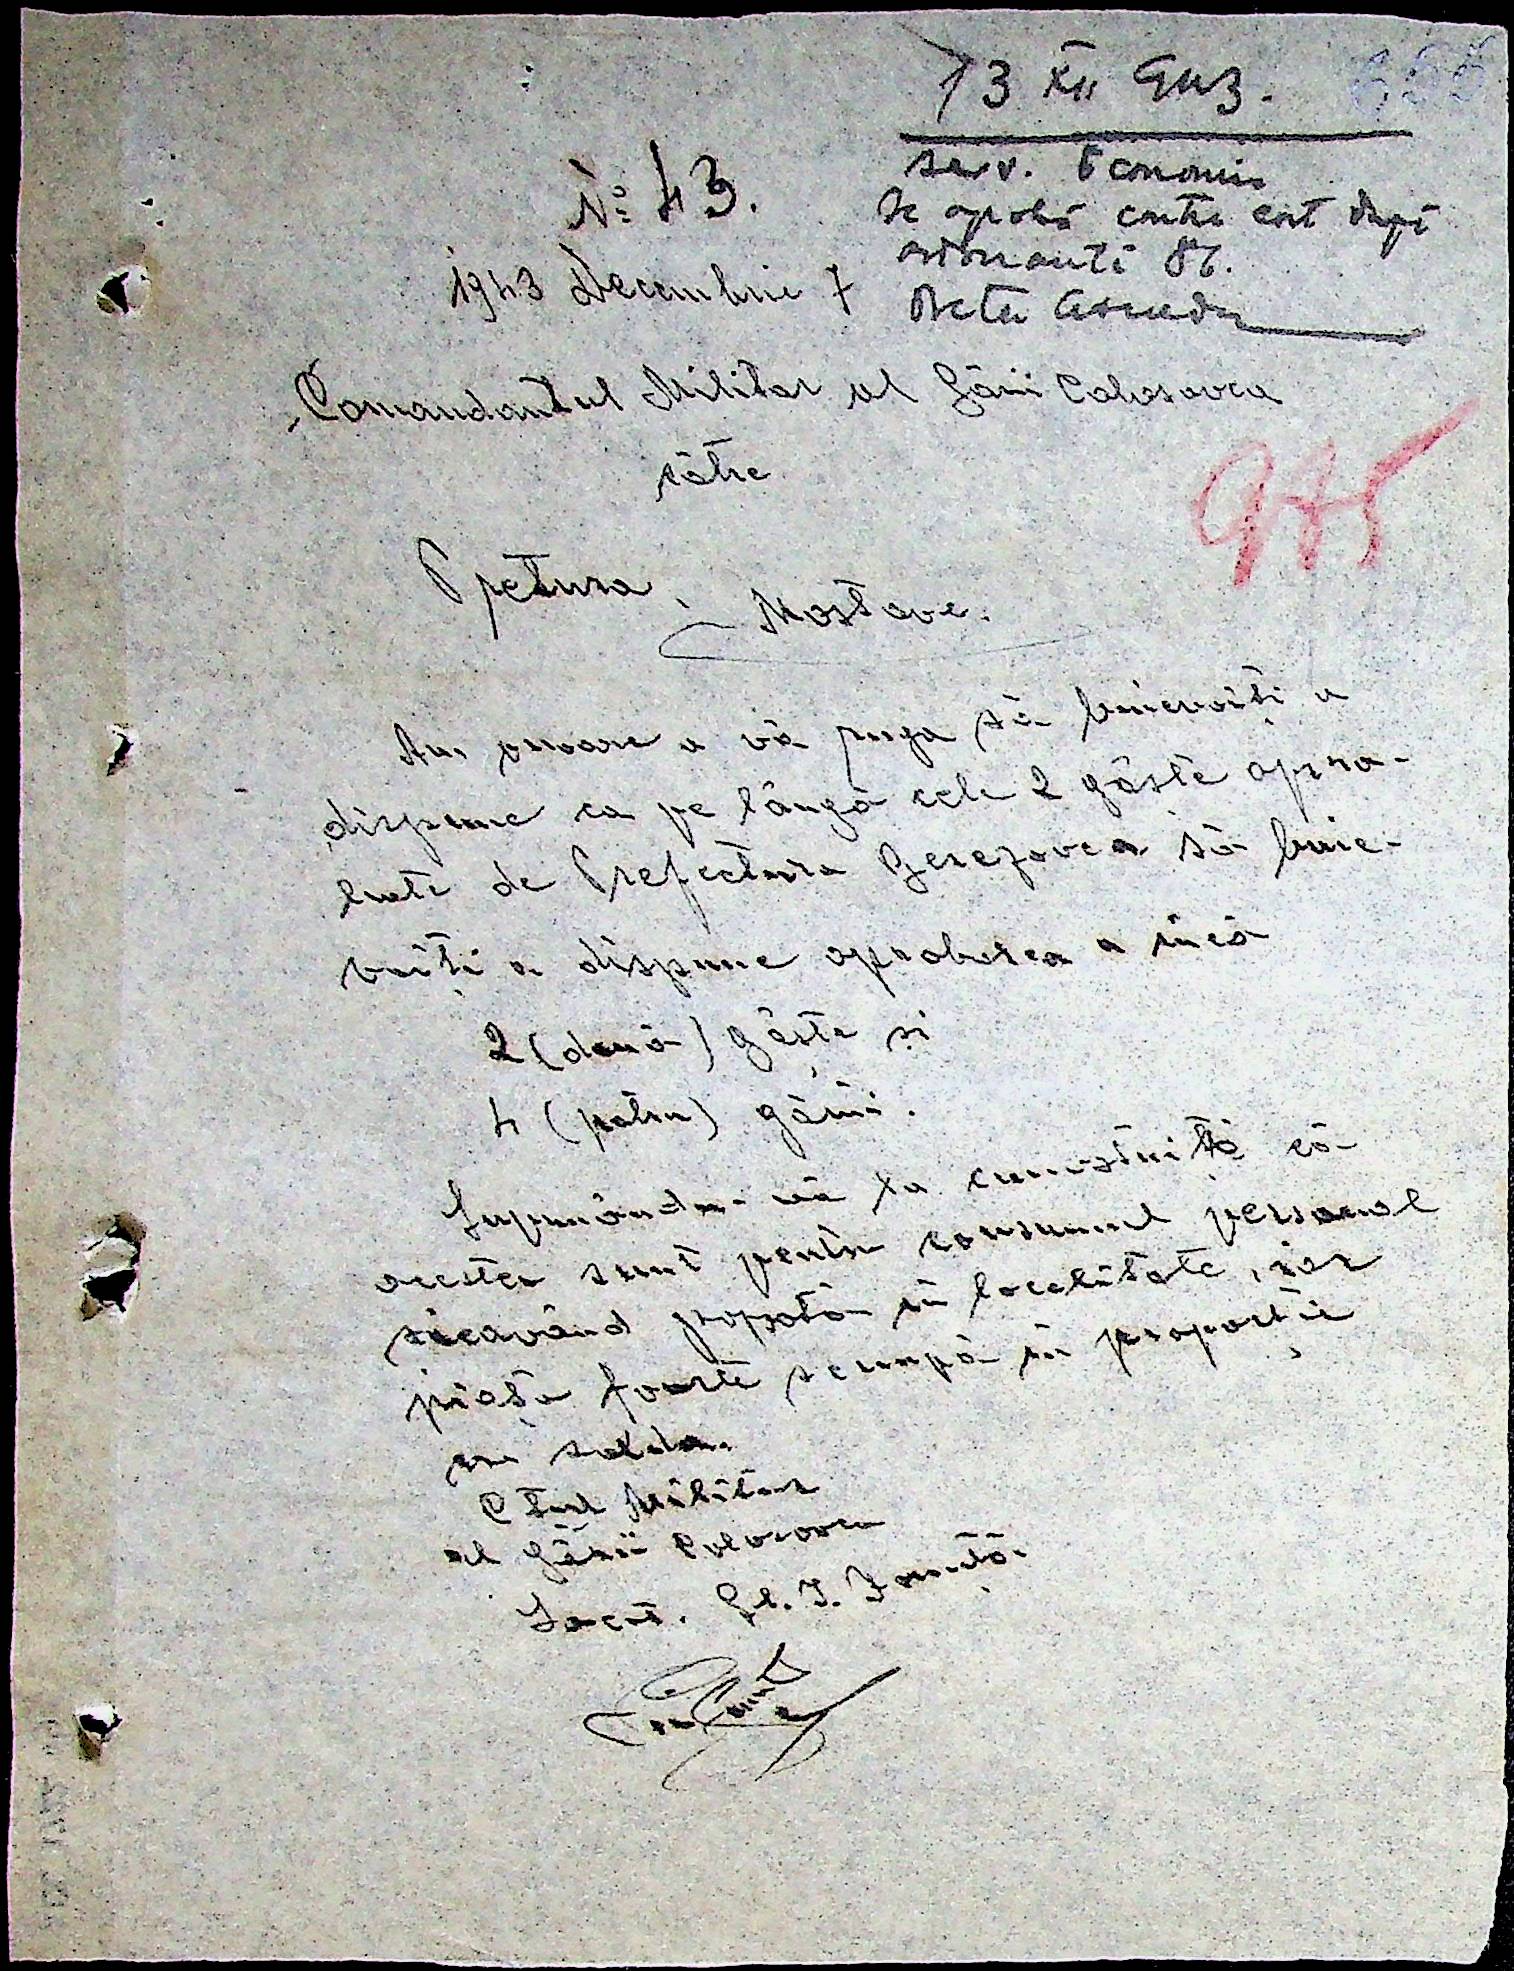 13 XII 943.
655
serv. Economic
Se aprobă contra cost după
ordonanță 86.
Nº 43.
1943 Decembrie 7
Comandantul Militar al Gării Colosovca
către
Pretura Mostove.
975
Am onoare a vă ruga să binevoiți a
dispune ca pe lângă cele 2 gâște apro-
bate de Prefectura Berezovca să bine-
voiți a dispune aprobarea a încă
2 (două) gâște și
4 (patru) găini.
Supunându-vă la cunoștință că
acestea sunt pentru consumul personal
neavând popotă în localitate, iar
piața foarte scumpă în proporție
cu solda.
Ctul Militar
al Gării Colosovca
Locot. I.